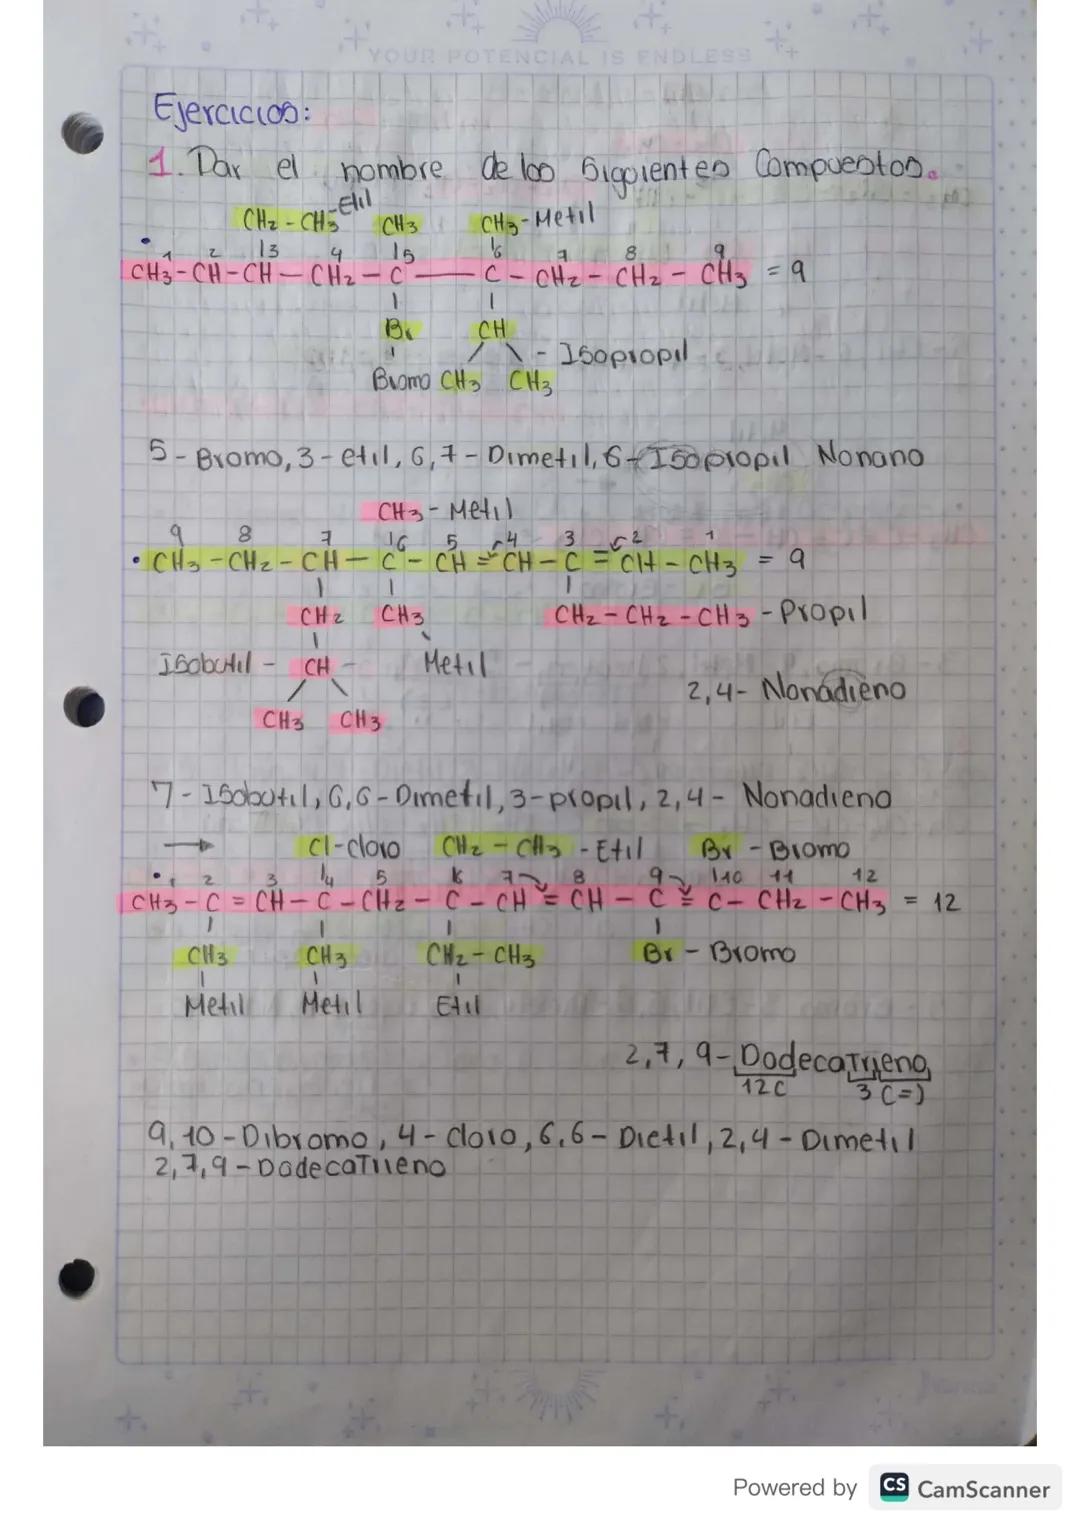 YOUR POTENCIAL IS ENDLESS
Ejercicios:
1. Dar el nombre de los siguientes Compuestos.
CH2 - CH3 -Etil CH3 CH3 - Metil
1 2 3 4 5 6 7 8 9
CH3 - CH - CH — CH2 - C — C - CH2 - CH2 - CH3 = 9
Br CH
- Isopropil
Bromo CH3 CH3
5 - Bromo, 3 - etil, 6,7 - Dimetil, 6 - Isopropil Nonano
CH3 - Metil
9 8 7 6 5 4 3 2 1
CH3 - CH2 - CH - C - CH = CH - C = CH - CH3 = 9
CH2 CH3 CH2 - CH2 - CH3 - Propil
Isobutil - CH - Metil
2,4 - Nonadieno
CH3 CH3
7 - Isobutil, 6,6 - Dimetil, 3 - propil, 2,4 - Nonadieno
Cl - cloro CH2 - CH3 - Etil Br - Bromo
1 2 3 4 5 6 7 8 9 10 11 12
CH3 - C = CH - C - CH2 - C - CH = CH - C = C - CH2 - CH3 = 12
CH3 CH3 CH2 - CH3 Br - Bromo
Metil Metil Etil
2,7,9 - DodecaTrieno
12C 3 (=)
9,10 - Dibromo, 4 - cloro, 6,6 - Dietil, 2,4 - Dimetil
2,7,9 - DodecaTrieno
Powered by CS CamScanner